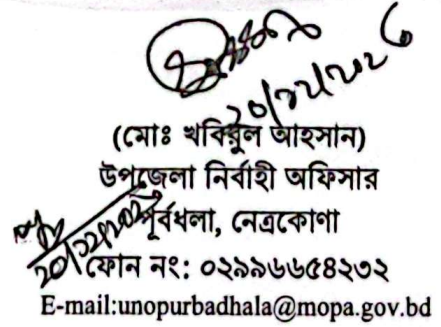 (মোঃ খবিরুল আহসান)
উপজেলা নির্বাহী অফিসার
পূর্বধলা, নেত্রকোণা
ফোন নং: ০২৯৯৬৬৫৪২৩২
E-mail:unopurbadhala@mopa.gov.bd